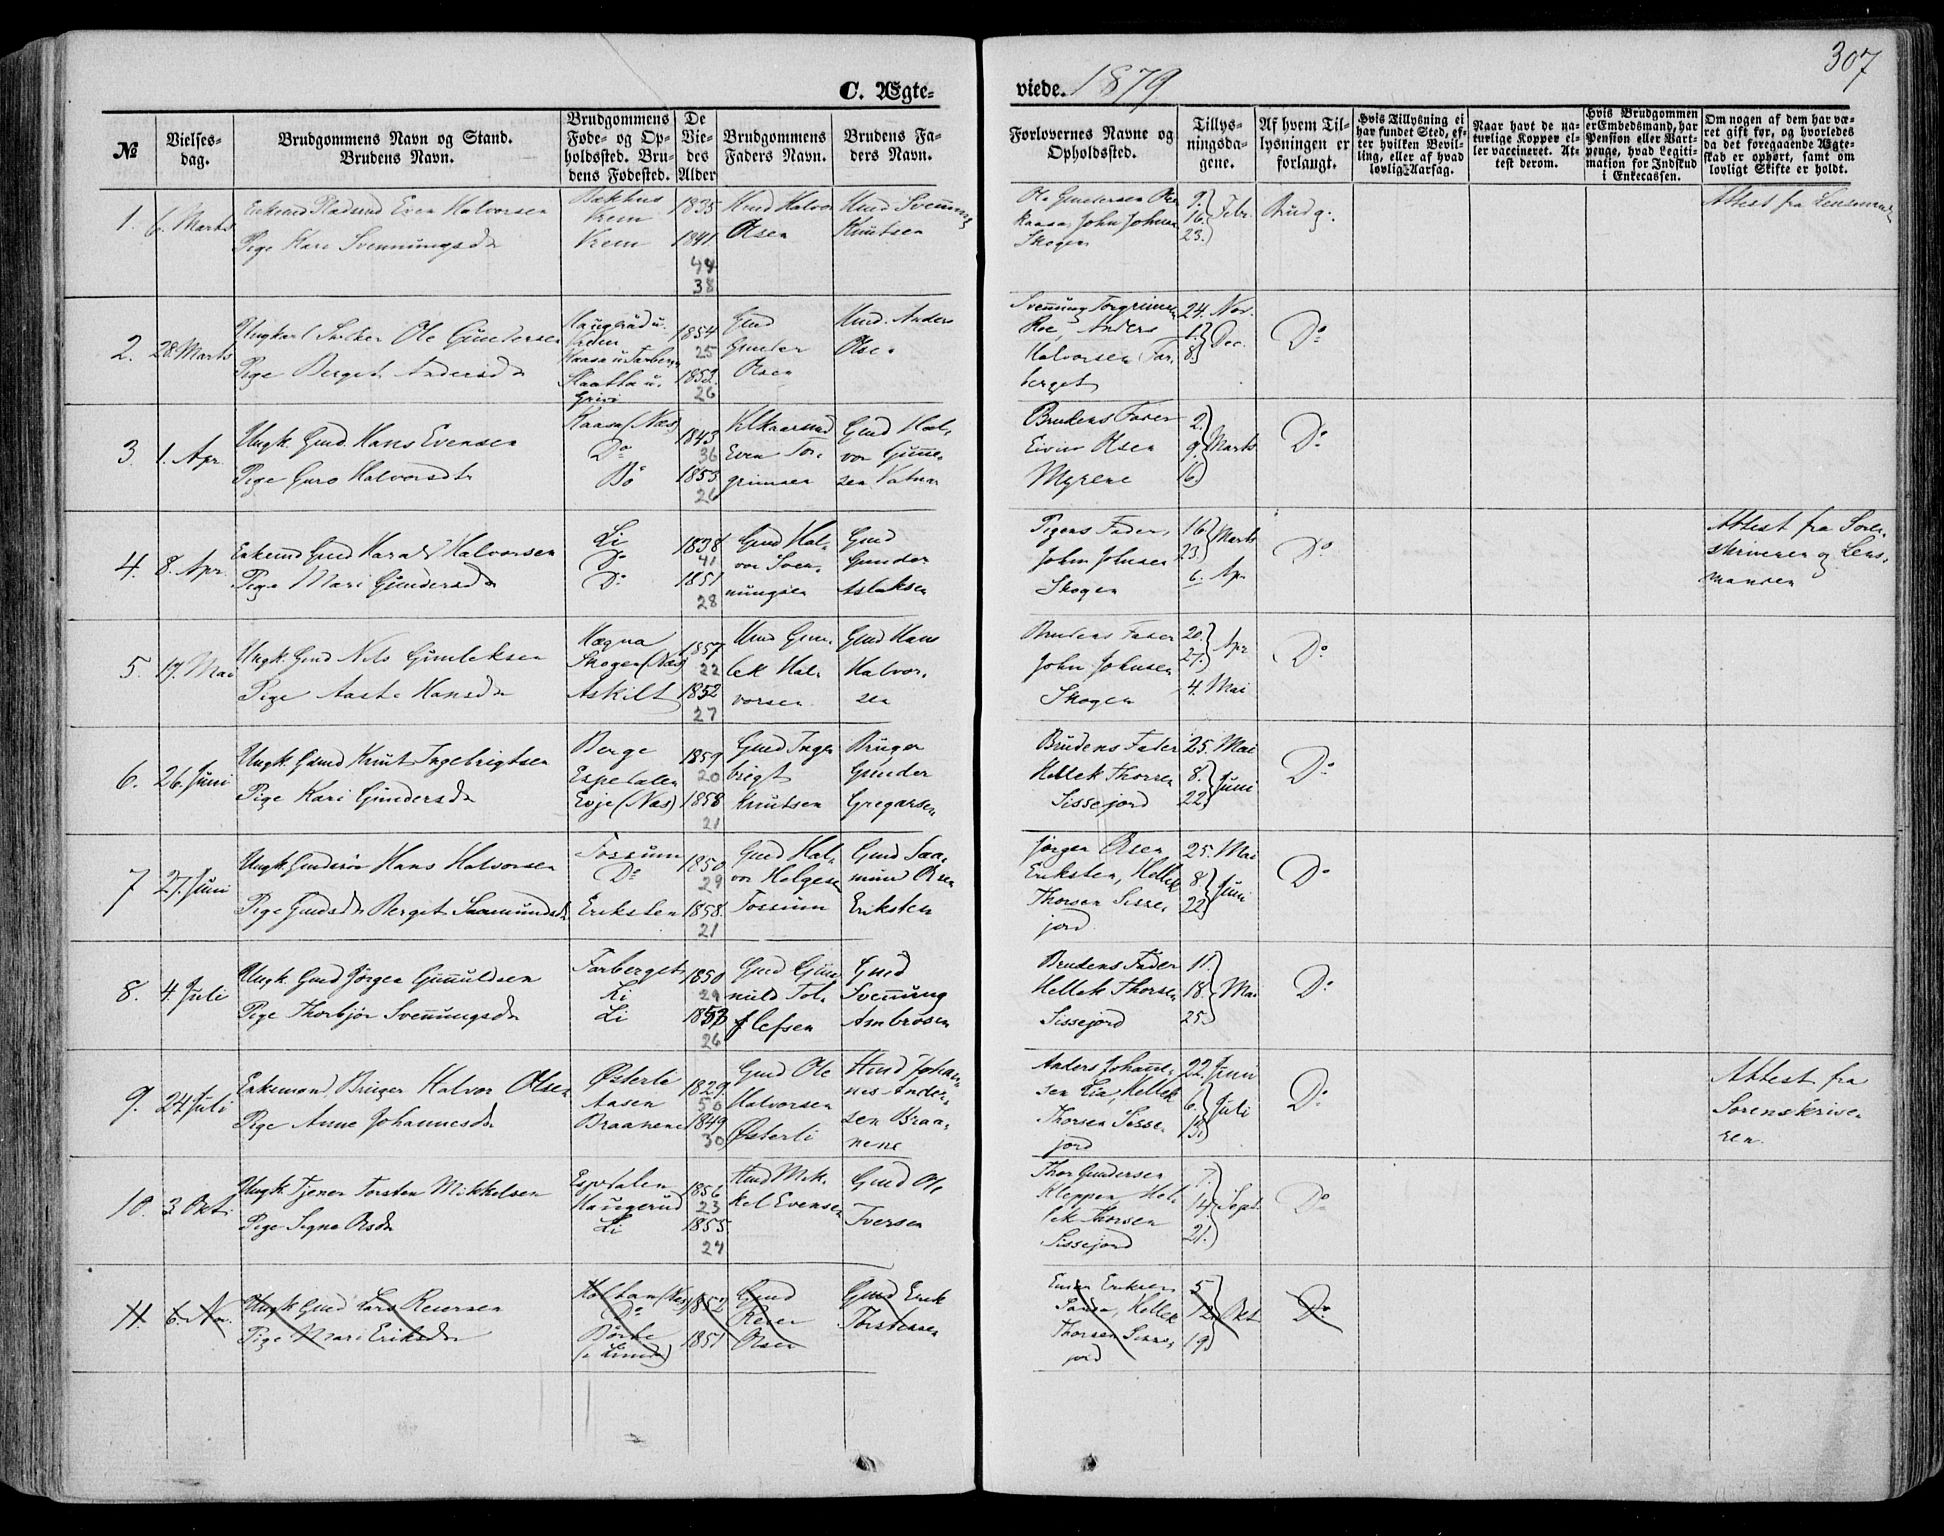 307
C. Ægte-
viede. 1879
№
Vielses-
dag.
Brudgommens Navn og Stand.
Brudens Navn.
Brudgommens
Føde- og Op-
holdssted. Bru-
dens Fødested.
De
Vie-
des
Alder
Brudgommens
Faders Navn.
Brudens Fa-
ders Navn.
Forlovernes Navne og
Opholdssted.
Tillys-
ningsda-
gene.
Af hvem Til-
lysningen er
forlangt.
Hvis Tillysning ei
har fundet Sted, ef-
ter hvilken Bevil-
ling, eller af hvad
lovlig Aarsag.
Naar havt de na-
turlige Kopper el-
ler vaccineret. At-
test derom.
Hvis Brudgommen
er Embedsmand, har
Pension eller Vart-
penge, hvad Legiti-
mation for Indskud
i Enkecassen.
Om nogen af dem har væ-
ret gift før, og hvorledes
da det foregaaende Ægte-
skab er ophørt, samt om
lovligt Skifte er holdt.
1. 6. Marts
Enkemd Pladsmd Even Halvorsen
Pige Kari Svennungsdr
Bakhus
Vrem
Vrem
1835
1841
44
38
Hmd Halvor
Olsen
Hmd Svennung
Knutsen
Ole Gundersen
Kaasa, John Johnsen
Skogen
9.
16. Febr.
23.
Brudg.
Attest fra Lensmand
2. 28. Marts
Ungkarl Ole Gundersen
Pige Berget Andersdr
Haugrud u.
Kaasa u. Farberget
1854
25
1853
26
Gmd
Gunder
Olsen
Hmd. Anders
Olsen
Svennung Torgrimsen
Roe, Anders
Halvorsen Far-
berget
24. Nov.
1. Dec.
8.
Do
3. 1. Apr.
Ungk. Gmd. Hans Evensen
Pige Guro Halvorsdr
Kaasa (Næs)
Do
Bö
1843
36
1853
26
Even Tor-
grimsen
Gmd Hal-
vor Gunne-
sen Vatnar
Brudens Fader
Eivin Olsen
Myrene
2.
9. Marts
16.
Do
4. 8. Apr.
Enkemd Gmd Harald Halvorsen
Pige Mari Gundersdr
Li
Do
Do
1838
41
1851
28
Gmd Hal-
vor Sven-
nungsen
Gmd
Gunder
Aslaksen
Pigens Fader,
John Johnsen
Skogen
16. Marts
23.
6. Apr
Do
Attest fra Soren-
skriveren og Lens-
manden
5. 17. Mai
Ungk. Gmd Nils Gunleksen
Pige Aaste Hansdr
Hægna
Skogen (Næs)
Askilt
1857
22
1852
27
Hmd Gun-
lek Hal-
vorsen
Gmd Hans
Halvor-
sen
Brudens Fader
John Johnsen
Skogen
20. Apr
27.
4. Mai
Do
6. 26. Juni
Ungk. Gmd Knut Ingebrigtsen
Pige Kari Gundersdr
Berge
Espedalen
Evje (Næs)
1859
20
1858
21
Gmd Inge-
brigt
Knutsen
Bruger
Gunder
Gregarsen
Brudens Fader
Hellek Thorsen
Sissejord
25. Mai
8. Juni
22.
Do
7 27. Juni
Ungk. Gmdsön Hans Halvorsen
Pige Gmdsdr Berget Saamundsdr
Fossum
Do
Eriksten
1850
29
1858.
21
Gmd Hal-
vor Helgesen
Fossum
Gmd Saa-
mund Olsen
Eriksten
Jørgen Olsen
Eriksten, Hellek
Thorsen Sisse-
jord.
25. Mai
8. Juni
22.
Do
8. 4. Juli
Ungk. Gmd Jørgen Gunnuldsen
Pige Thorbjør Svennungsdr
Farberget
Li
Li
1850
29
1853
26
Gmd Gun-
nuld Tol-
lefsen
Gmd
Svennung
Ambrosen
Brudens Fader
Hellek Thorsen
Sissejord
11.
18. Mai
25.
Do
9. 24 Juli
Enkemand, Bruger Halvor Olsen
Pige Anne Johannesdr
Østerli
Aasen
Braanene
1829
50
1849
30
Gmd Ole
Halvorsen
Østerli
Hmd Johan-
nes Ander-
sen Braa-
nene
Anders Johanne-
sen Lia, Hellek
Thorsen Sisse-
jord
22. Juni
6. Juli
13.
Do
Attest fra
Sorenskrive-
ren.
10. 3 Okt.
Ungk. Tjener Torsten Mikkelsen
Pige Signe Olsdr
Espedalen
Haugerud
Li
1856
23
1855.
24
Hmd Mik-
kel Evensen
Gmd Ole
Iversen
Thor Gundersen
Kleppen, Hel-
lek Thorsen
Sissejord
7.
14. Sept
21.
Do
11. 6. Nov.
Ungk. Gmd Lars Reiersen
Pige Mari Eriksdr
Holtan (Næs)
Do
Börte
1852
1851
Gmd
Reier
Olsen
Gmd Erik
Torstensen
Eriksen
Hellek
Thorsen Sisse-
jord
5
12. Okt
19.
Do